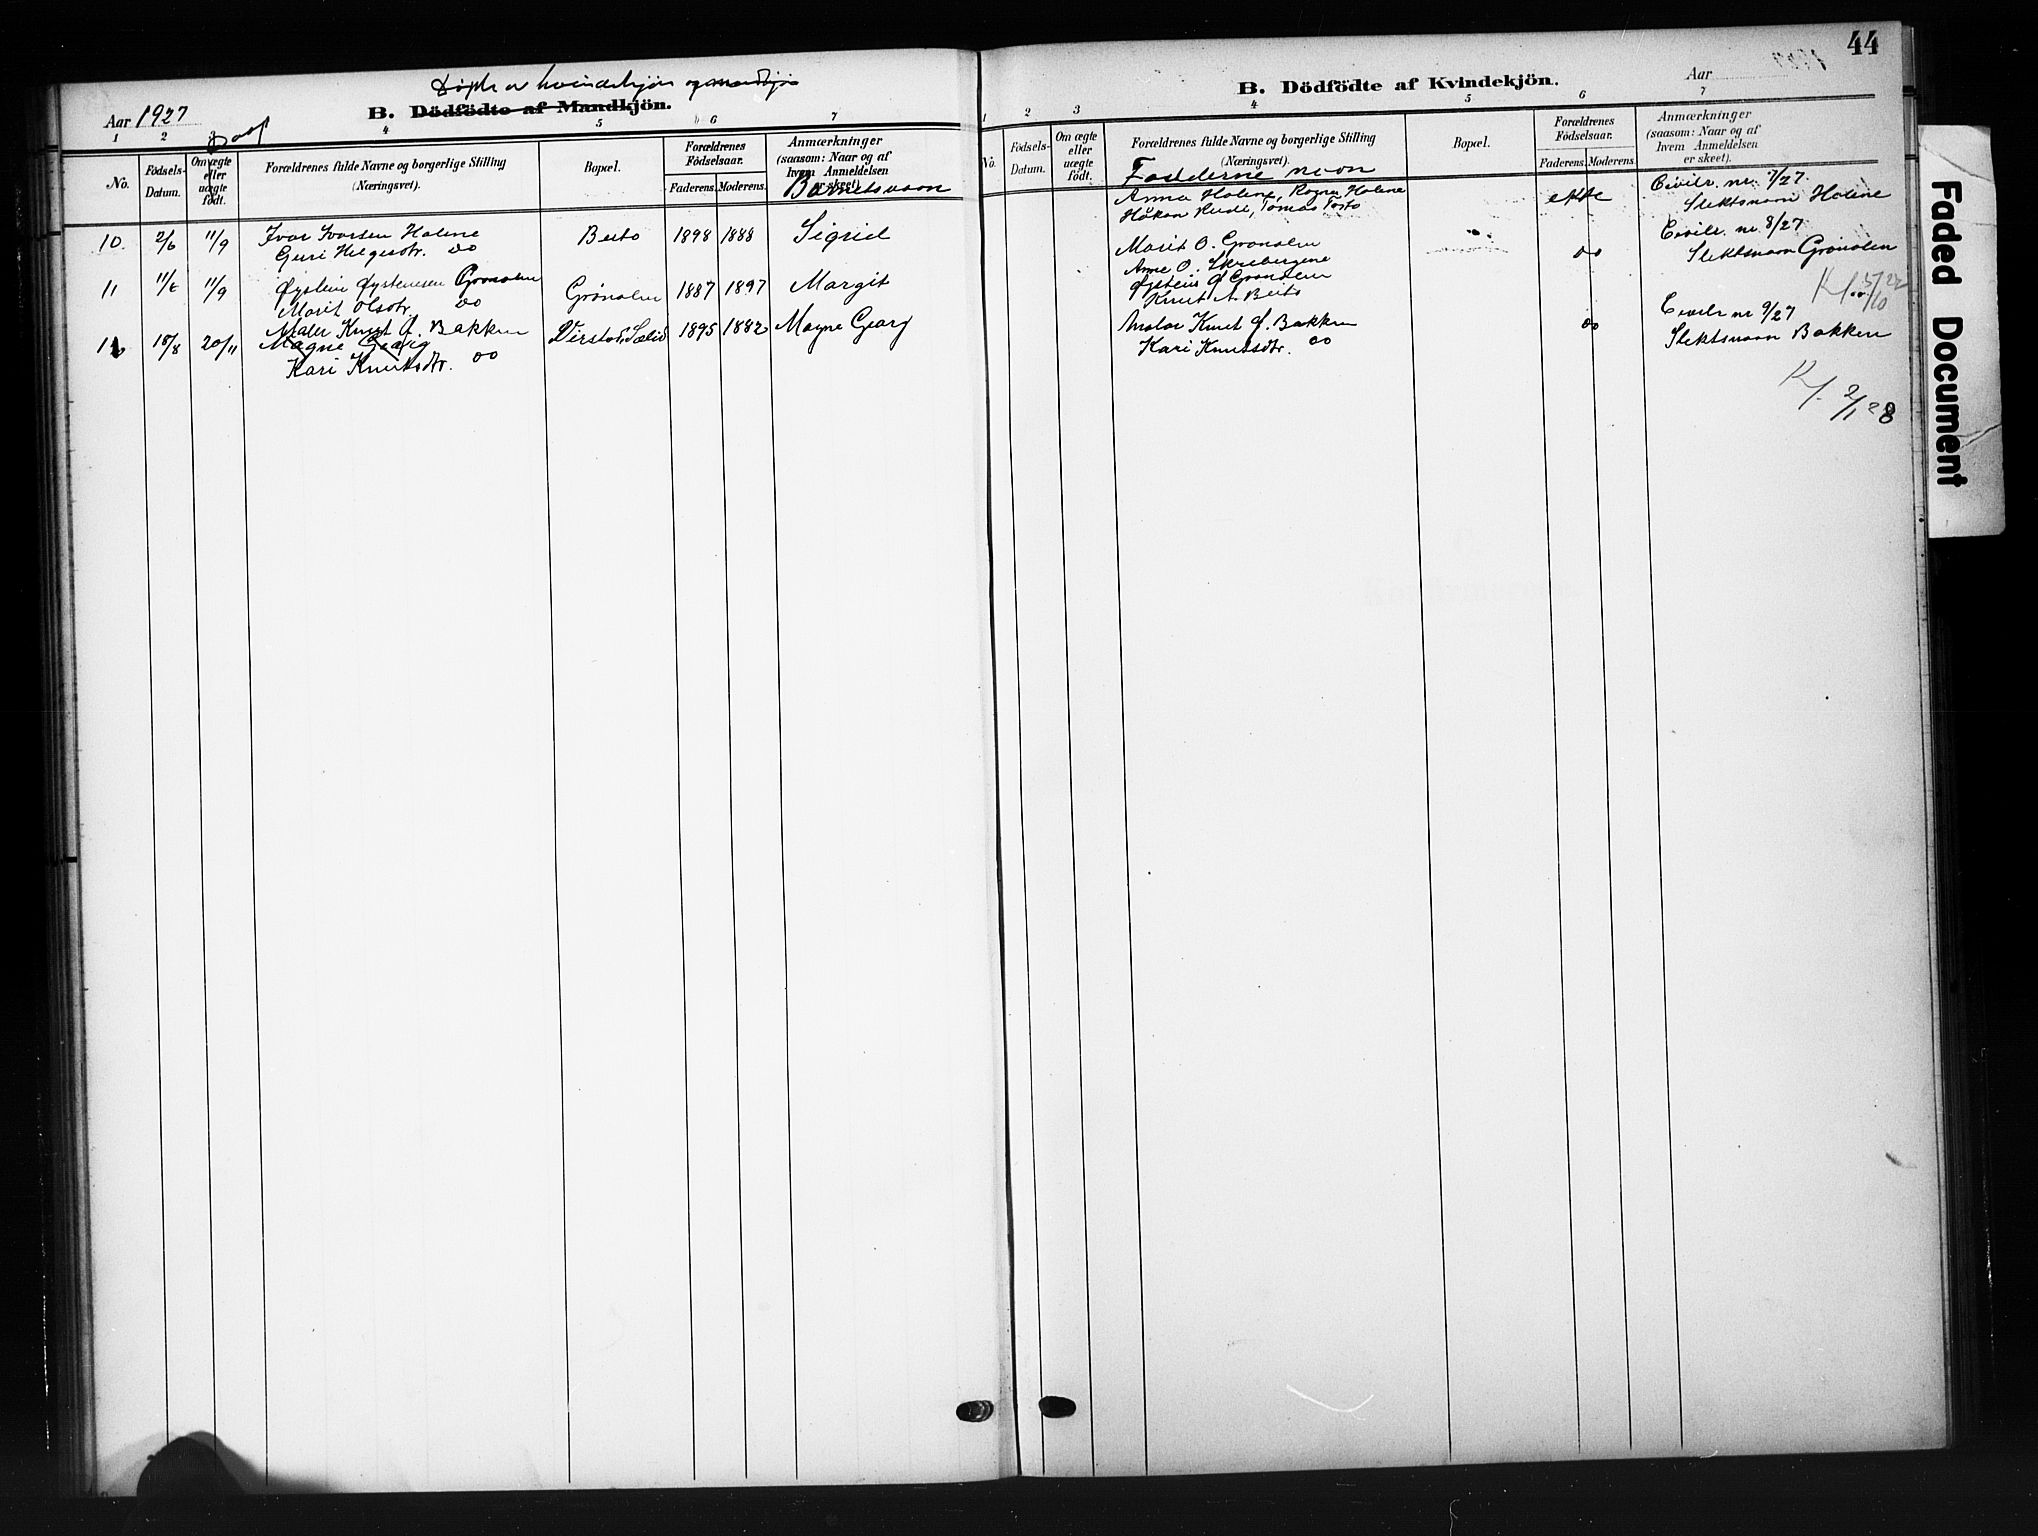 44
Døpte av kvindekjøn og mandkjøn
Aar 1927
B. Dödfödte af Mandkjön.
1 2 3 4 5 6 7
Daab
No.
Födsels-
Datum.
Om ægte
eller
uægte
födt.
Forældrenes fulde Navne og borgerlige Stilling
(Næringsvei).
Bopæl.
Forældrenes
Födselsaar.
Faderens. Moderens.
Anmærkninger
(saasom: Naar og af
hvem Anmeldelsen
er skeet).
Barnets navn
10. 2/6 11/9 Ivar Ivarsen Holene Beito 1898 1888 Sigrid
Guri Helgesdtr. do
11 11/6 11/9 Øystein Øystensen Grønolen Grønolen 1887 1897 Margit
Marit Olsdtr. do
Maler Knut O. Bakken
12 18/8 20/11 Magne Georg Sælid 1895 1882 Magne Georg
Kari Knutsdtr. do
B. Dödfödte af Kvindekjön.
Aar
1 2 3 4 5 6 7
No.
Födsels-
Datum.
Om ægte
eller
uægte
födt.
Forældrenes fulde Navne og borgerlige Stilling
(Næringsvei).
Fadderne navn
Bopæl.
Forældrenes
Födselsaar.
Faderens. Moderens.
Anmærkninger
(saasom: Naar og af
hvem Anmeldelsen
er skeet).
Anna Holene, Ragna Holene ekte Civilr. nr. 7/27
Håkon Rudi, Tomas Slektsnavn Holene
Marit O. Grønolen Civilr. nr. 8/27
Anne O. Skrebergene do Slektsnavn Grønolen
Øystein Ø Grønolen
Knut A. Beito
Maler Knut O. Bakken do Civilr nr 9/27
Kari Knutsdtr. do Slektsnavn Bakken
2/1 28
Faded Document